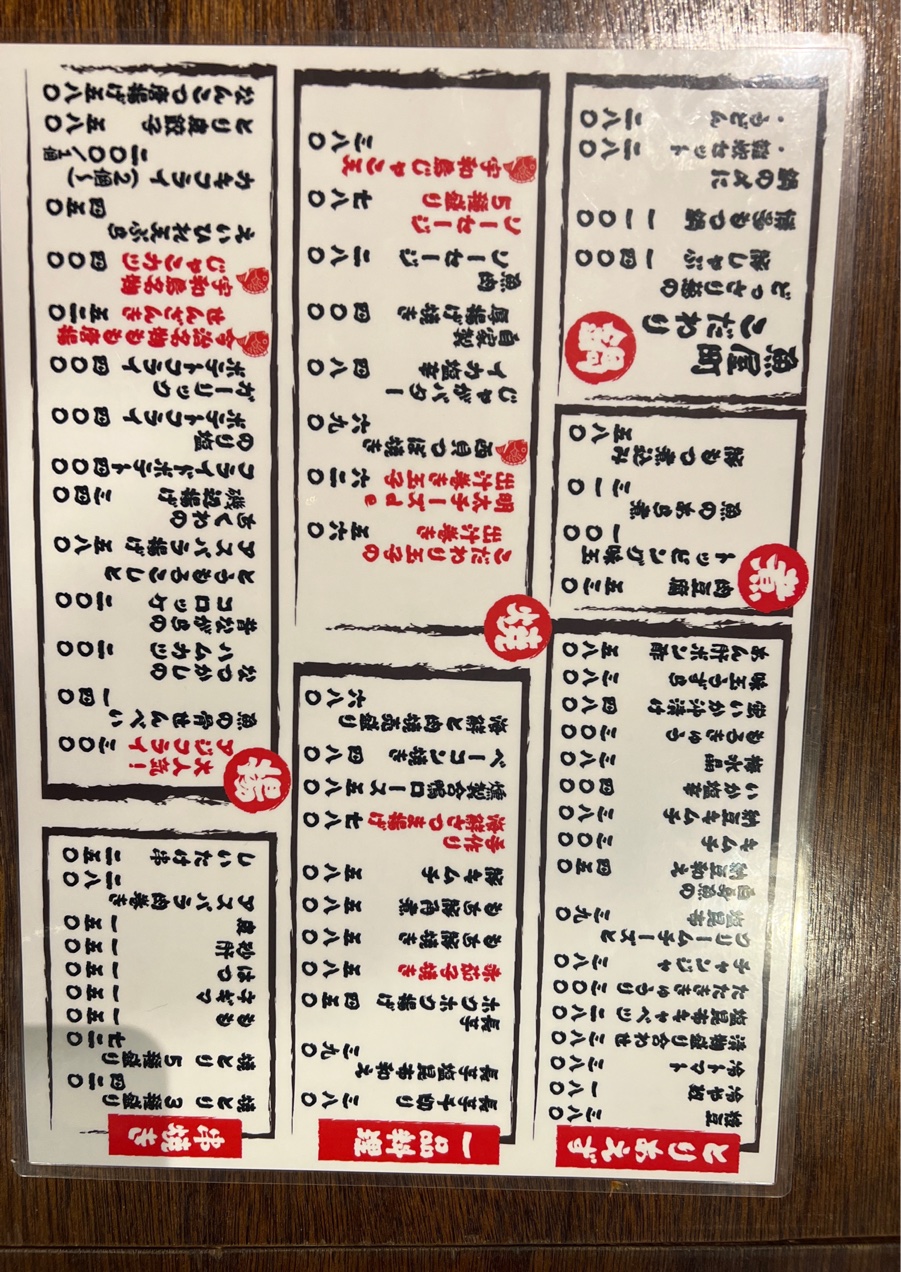 とりあえず
枝豆 三八〇
冷や奴 一八〇
冷トマト 三八〇
漬物盛り合わせ 三八〇
塩昆布キャベツ 二八〇
たたききゅうり 三〇〇
チャンジャ 三八〇
クリームチーズと
塩昆布 三九〇
白身魚の
納豆和え 四五〇
キムチ 三〇〇
納豆キムチ 三八〇
いか塩辛 四〇〇
梅水晶 三八〇
もろきゅう 三〇〇
蛍いか沖漬け 四八〇
味玉うずら 三八〇
あん肝ポン酢 五八〇
煮
肉豆腐 五三〇
トッピング味玉
一〇〇
魚のあら煮
三一〇
豚もつ煮込み
五八〇
魚屋町
こだわり
鍋
どっさり葱の
豚しゃぶ 一四〇〇
博多もつ鍋 一一〇〇
鍋の〆に
・雑炊セット 二八〇
・うどん 二八〇
一品料理
長芋千切り 三八〇
長芋塩昆布和え
三九〇
長芋
ホクホク揚げ 四五〇
赤茄子焼き 五八〇
もち豚焼き 五八〇
もち豚角煮 五八〇
豚キムチ 五八〇
手作り
海鮮さつま揚げ 七八〇
燻製合鴨ロース 五八〇
ベーコン焼き 四八〇
海鮮と肉焼売盛り
六八〇
焼
こだわり玉子の
出汁巻き 五六〇
明太チーズde
出汁巻き玉子 六二〇
西貝つぼ焼き
六九〇
じゃがバター
イカ塩辛 四八〇
自家製
厚揚げ焼き 四〇〇
魚肉
ソーセージ 二八〇
ソーセージ
5種盛り 七八〇
宇和島じゃこ天
三八〇
串焼き
焼とり 3種盛り
四二〇
焼とり 5種盛り
七二〇
もも 一五〇
ネギマ 一五〇
はつ 一五〇
砂肝 一五〇
皮 一五〇
アスパラ肉巻き
二八〇
しいたけ串 二五〇
揚
大人気!
アジフライ 三〇〇
魚の骨せんべい
一四〇
なつかしの
ハムカツ 二〇〇
昔ながらの
コロッケ 二〇〇
とうもろこしと
アスパラ揚げ 五八〇
ちくわの
磯辺揚げ 三四〇
フライドポテト 四〇〇
のり塩
ポテトフライ 四〇〇
ガーリック
ポテトフライ 四〇〇
今治名物もも唐揚
せんざんき 五二〇
宇和島名物
じゃこカツ 四〇〇
えいひれ天ぷら
四五〇
カキフライ(2個〜)
二〇〇/1個
とり皮餃子 五八〇
なんこつ唐揚げ 五八〇